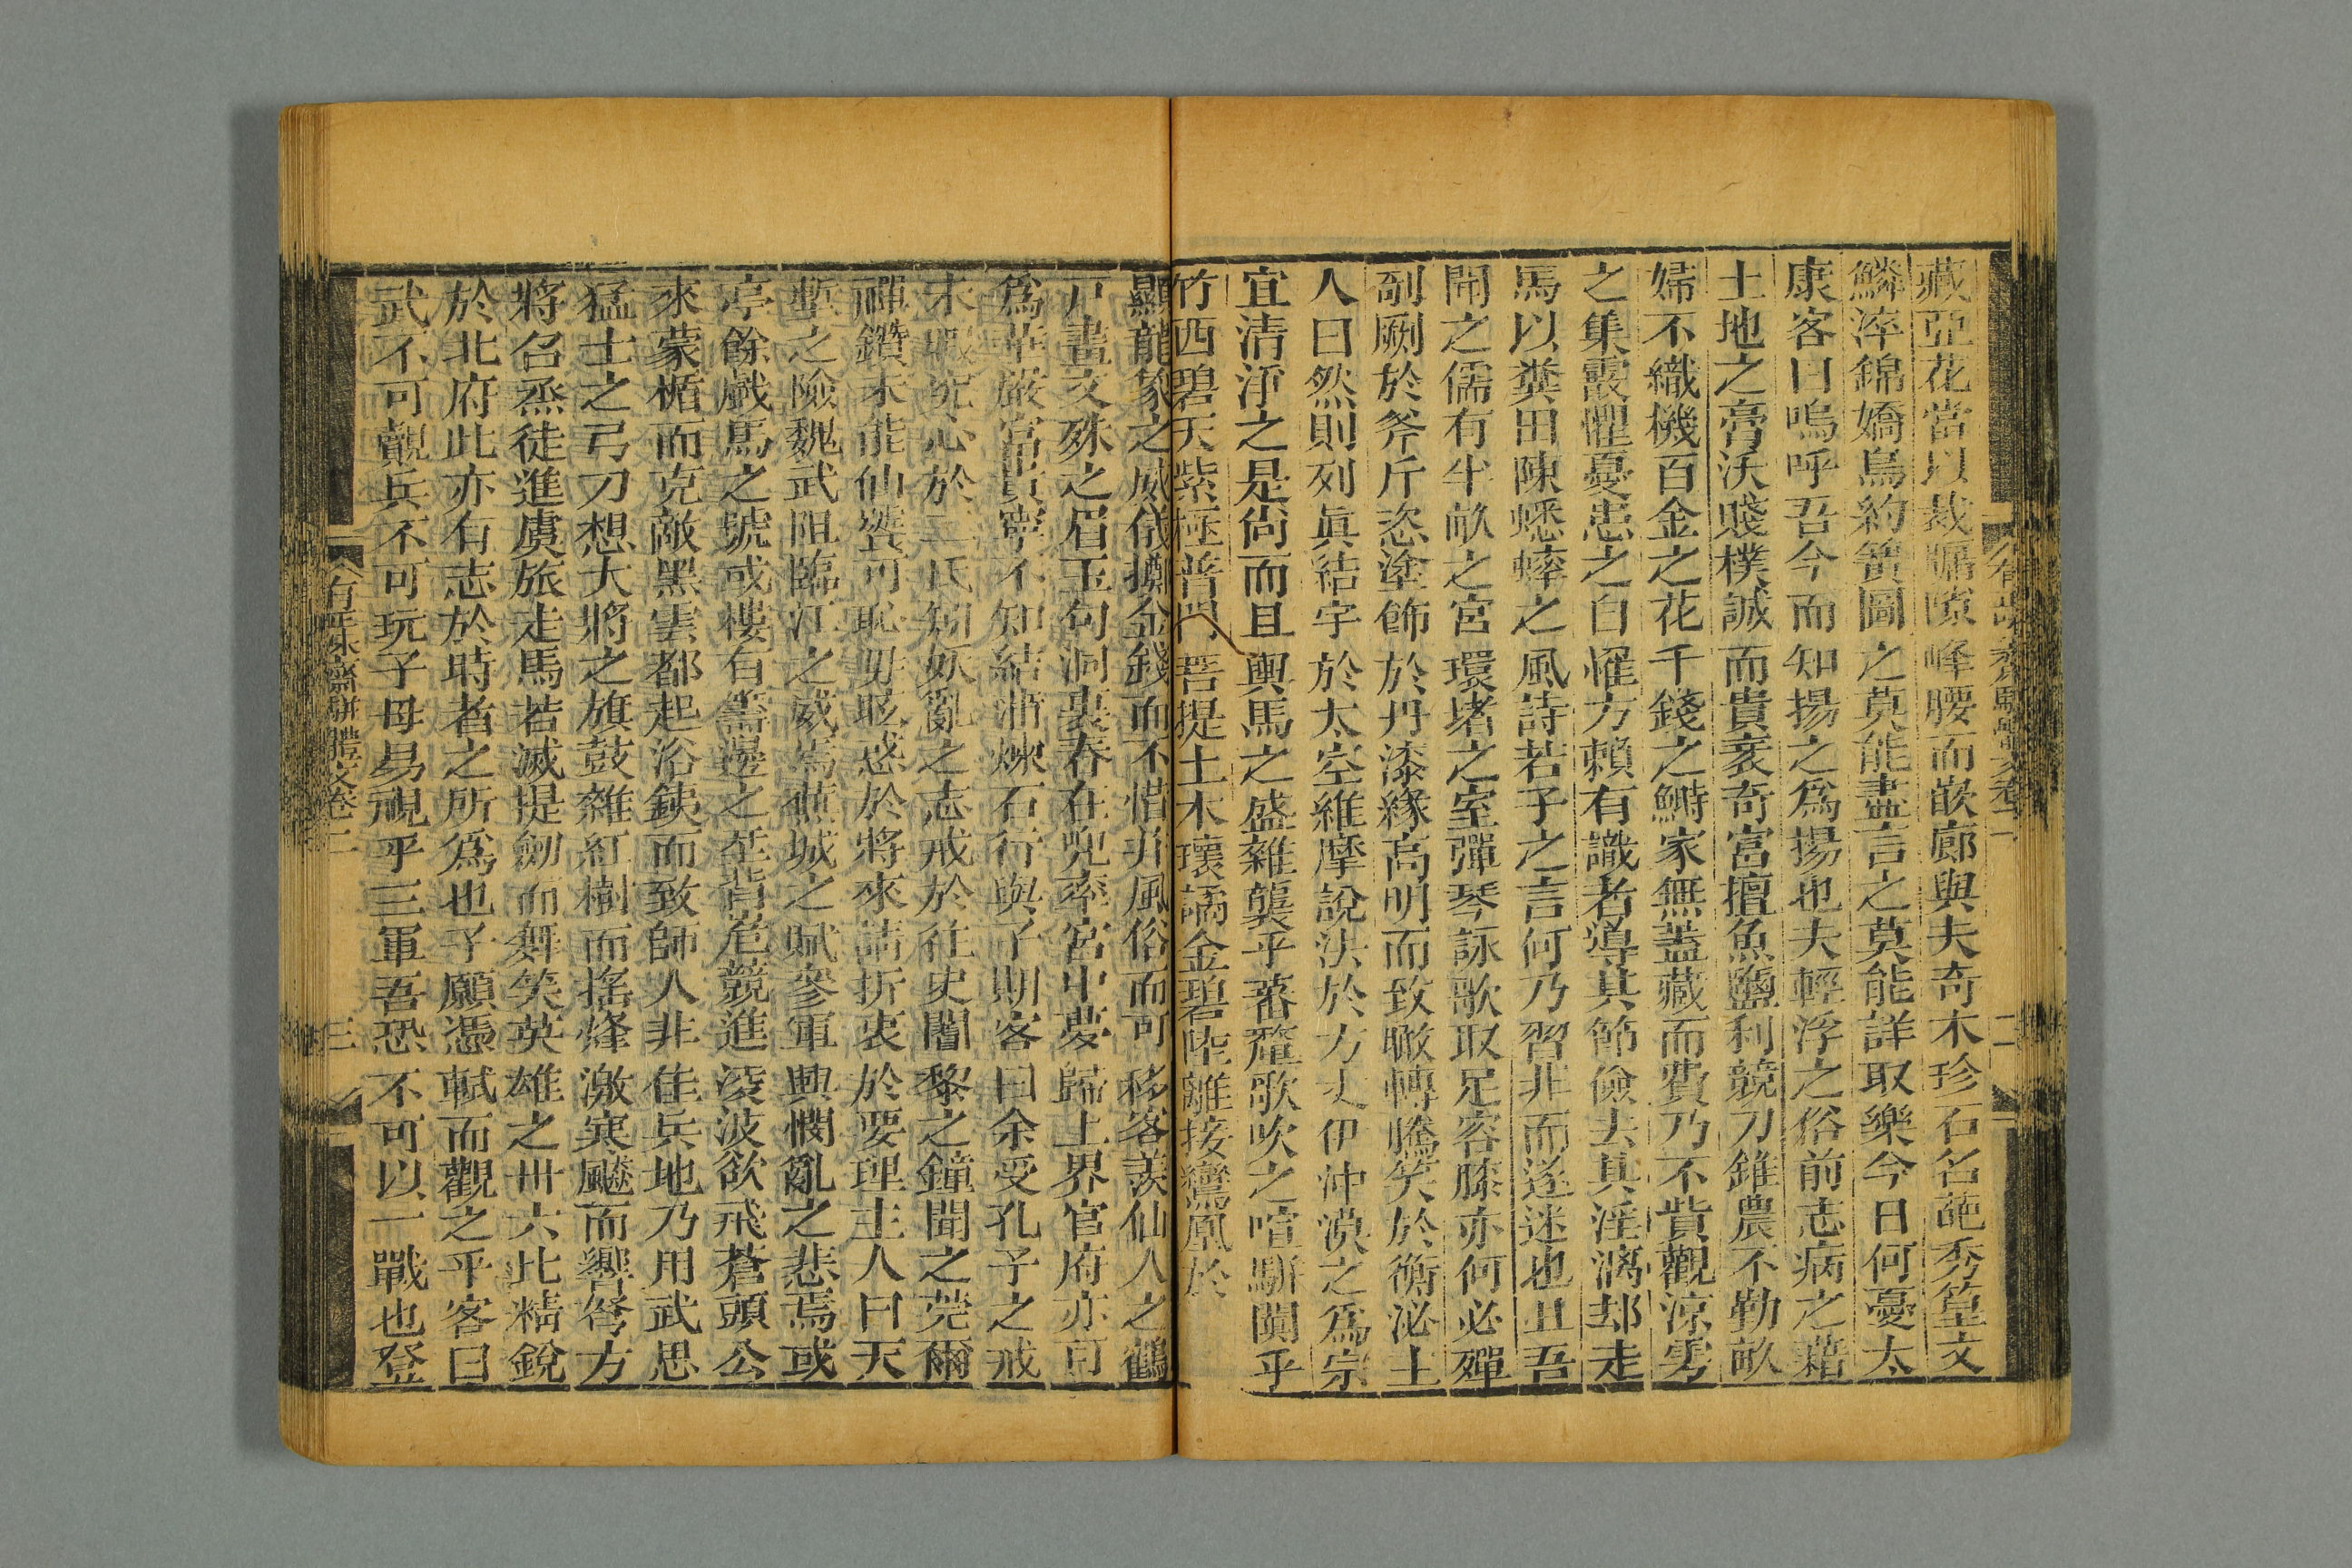 藏亞花當以裁牖隙峰腰而嵌廊與夫奇木珍石名葩秀篁文
鱗淬錦嬌鳥約簧圖之莫能盡言之莫能詳取樂今日何憂太
康客曰嗚呼吾今而知揚之爲揚也夫輕浮之俗前志病之藉
土地之膏沃賤樸誠而貴袤奇富擅魚鹽利競刀錐農不勤畝
婦不織機百金之花千錢之鰣家無蓋藏而費乃不貲觀涼雱
之集霰懼憂患之自罹方賴有識者導其節儉去其淫漓却走
馬以糞田陳蟋蟀之風詩若子之言何乃習非而遂迷也且吾
聞之儒有半畝之宮環堵之室彈琴詠歌取足容膝亦何必殫
剞劂於斧斤恣塗飾於丹漆緣高明而致瞰轉騰笑於衡泌主
人曰然則列眞結宇於太空維摩說決於方丈伊沖漠之爲宗
宜清淨之是尙而且輿馬之盛雜襲乎蕃釐歌吹之喧駢闐乎
竹西碧天紫極普門菩提土木瓌譎金碧陸離接鸞凰於
顯龍象之威儀擲金錢而不惜并風俗而可移客羨仙人之鶴
戸畫文殊之眉玉句洞裏春在兜率宮中夢歸上界官府亦可
爲華嚴富貴寧不知結游煉石行與子期客曰余受孔子之戒
未暇究心於二氏矧妖亂之志戒於往史闍黎之鐘聞之莞爾
禪鑽未能仙襲可恥毋眩惑於將來請折衷於要理主人曰天
塹之險魏武阻臨江之威焉蕪城之賦參軍興憫亂之悲焉或
亭餘戲馬之號或樓有籌邊之基背嵬競進淩波欲飛蒼頭公
來蒙楯而克敵黑雲都起浴鐵而致師人非佳兵地乃用武思
猛士之弓刀想大將之旗鼓雜紅樹而搖烽激寒飈而響弩方
將召烝徒進虞旅走馬若滅提劒而舞笑英雄之卅六比精銳
於北府此亦有志於時者之所爲也子願憑軾而觀之乎客曰
武不可覿兵不可玩子毋易視乎三軍吾恐不可以一戰也登
有正味齋駢體文卷二
三